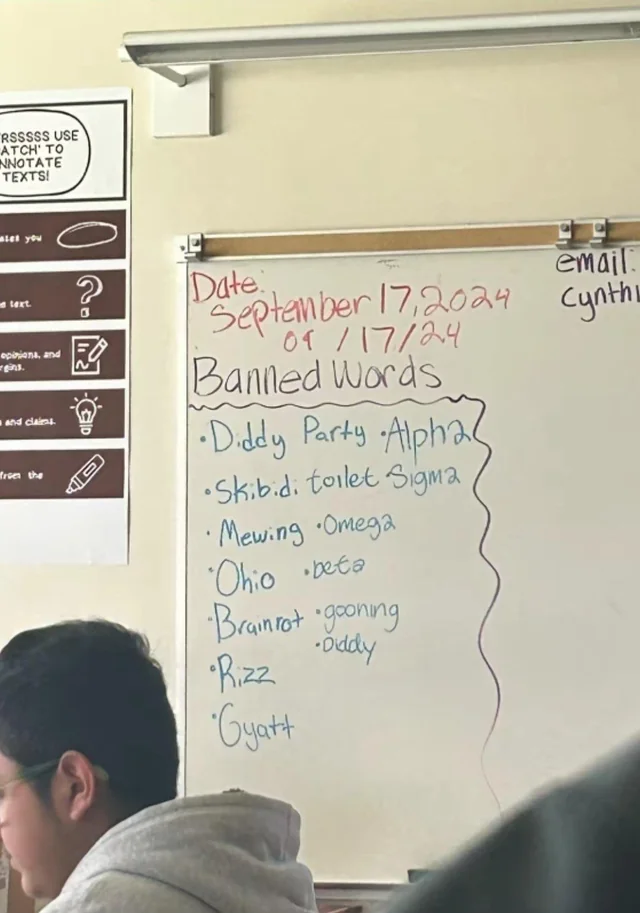 RSSSSS USE
ATCH' TO
NNOTATE
TEXTS!
ates you
s text.
opinions, and
rgins.
and claims.
from the
Date:
September 17, 2024
09/17/24
email:
Cynthi
Banned Words
• Diddy Party • Alpha
• Skibidi toilet Sigma
• Mewing • Omega
• Ohio • beta
• Brainrot • gooning
• Diddy
• Rizz
• Gyatt